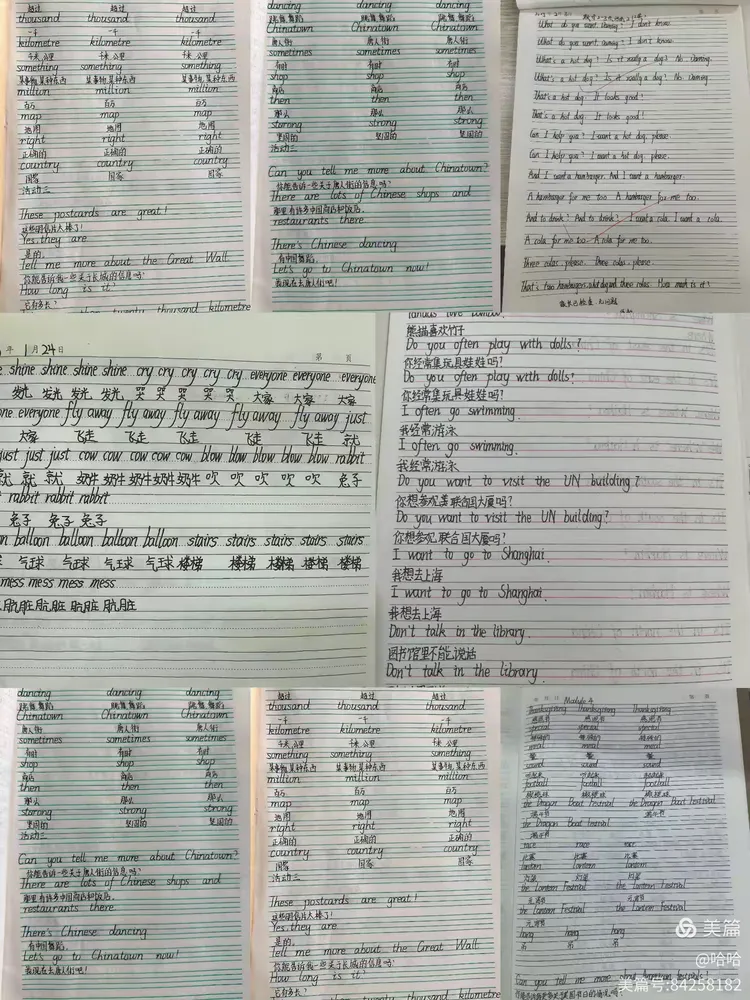 超过 超过 超过
thousand thousand thousand
一千 一千 一千
kilometre kilometre kilometre
千米,公里 千米 公里 千米 公里
something something something
某事物,某种东西 某事物 某种东西 某事物 某种东西
million million million
百万 百万 百万
map map map
地图 地图 地图
right right right
正确的 正确的 正确的
country country country
国家 国家 国家
活动三
These postcards are great!
这些明信片太棒了!
Yes, they are
是的.
Tell me more about the Great Wall
你能告诉我一些关于长城的信息吗?
How long is it?
它有多长?
twenty thousand kilometre
dancing dancing dancing
跳舞 舞蹈 跳舞 舞蹈 跳舞 舞蹈
Chinatown Chinatown Chinatown
唐人街 唐人街 唐人街
sometimes sometimes sometimes
有时 有时 有时
shop shop shop
商店 商店 商店
then then then
那么 那么 那么
starong strong strong
坚固的 坚固的 坚固的
活动三
Can you tell me more about Chinatown?
你能告诉一些关于唐人街的信息吗?
There are lots of Chinese shops and
那里有许多中国商店和饭店.
restaurants there.
There's Chinese dancing
有中国舞蹈.
Let's go to Chinatown now!
我们现在去唐人街吧!
What do you want, Daming? I don't know.
What do you want Daming? I don't know.
What's a hot dog? Is it really a dog? No. Daming.
What's a hot dog? Is it really a dog? No. Daming.
That's a hot dog. It looks good!
That's a hot dog. It looks good!
Can I help you? I want a hot dog, please.
Can I help you? I want a hot dog, please.
And I want a hamburger. And I want a hamburger.
A hamburger for me too. A hamburger for me too.
And to drink? And to drink? I want a cola. I want a cola.
A cola for me too. A cola for me too.
Three colas, please. Three colas, please.
年 1月24日
第 页
shine shine shine shine cry cry cry cry everyone everyone everyone
发光 发光 发光 哭 哭 哭 哭 大家 大家 大家
everyone fly away fly away fly away fly away just
大家 飞走 飞走 飞走 飞走 就
just just just cow cow cow cow blow blow blow blow rabbit
就 就 就 奶牛 奶牛 奶牛 奶牛 吹 吹 吹 吹 兔子
rabbit rabbit rabbit
兔子 兔子 兔子
balloon balloon balloon balloon stairs stairs stairs stairs
气球 气球 气球 气球 楼梯 楼梯 楼梯 楼梯 楼梯
mess mess mess mess
肮脏 肮脏 肮脏 肮脏
熊猫喜欢竹子
Do you often play with dolls?
你经常集玩具娃娃吗?
Do you often play with dolls?
你经常集玩具娃娃吗?
I often go swimming.
我经常游泳
I often go swimming.
我经常游泳
Do you want to visit the UN building?
你想参观 联合国大厦吗?
Do you want to visit the UN building?
你想参观 联合国大厦吗?
I want to go to Shanghai.
我想去上海
I want to go to Shanghai.
我想去上海
Don't talk in the library.
图书馆里不能说话
Don't talk in the library.
dancing dancing dancing
跳舞 舞蹈 跳舞 舞蹈 跳舞 舞蹈
Chinatown Chinatown Chinatown
唐人街 唐人街 唐人街
sometimes sometimes sometimes
有时 有时 有时
shop shop shop
商店 商店 商店
then then then
那么 那么 那么
starong strong strong
坚固的 坚固的 坚固的
活动三
Can you tell me more about Chinatown?
你能告诉一些关于唐人街的信息吗?
There are lots of Chinese shups and
那里有许多中国商店和饭店.
restaurants there.
There's Chinese dancing
有中国舞蹈.
Let's go to Chinatown now!
我们现在去唐人街吧!
超过 超过 超过
thousand thousand thousand
一千 一千 一千
kilometre kilometre kilometre
千米,公里 千米 公里 千米 公里
something something something
某事物,某种东西 某事物 某种东西 某事物 某种东西
million million million
百万 百万 百万
map map map
地图 地图 地图
right right right
正确的 正确的 正确的
country country country
国家 国家 国家
活动三
These postcards are great!
这些明信片太棒了!
Yes, they are
是的.
Tell me more about the Great Wall
你能告诉我一些关于长城的信息吗?
How long is it?
它有多长?
Module 4
Thanksgiving Thanksgiving Thanksgiving
感恩节 感恩节 感恩节
special special special
特别的 特别的 特别的
meal meal meal
餐 餐 餐
sound sound sound
football football football
橄榄球 橄榄球 橄榄球
the Dragon Boat Festival the Dragon Boat Festival
端午节 端午节
the Dragon Boat Festival
端午节
race race race
比赛 比赛 比赛
lantern lantern lantern
灯笼 灯笼 灯笼
the Lantern Festival the Lantern Festival
元宵节 元宵节
the Lantern Festival the Lantern Festival
元宵节
hang hang hang
吊 吊 吊
Can you tell me more about American festivals?
美篇
@哈哈
美篇号:84258182